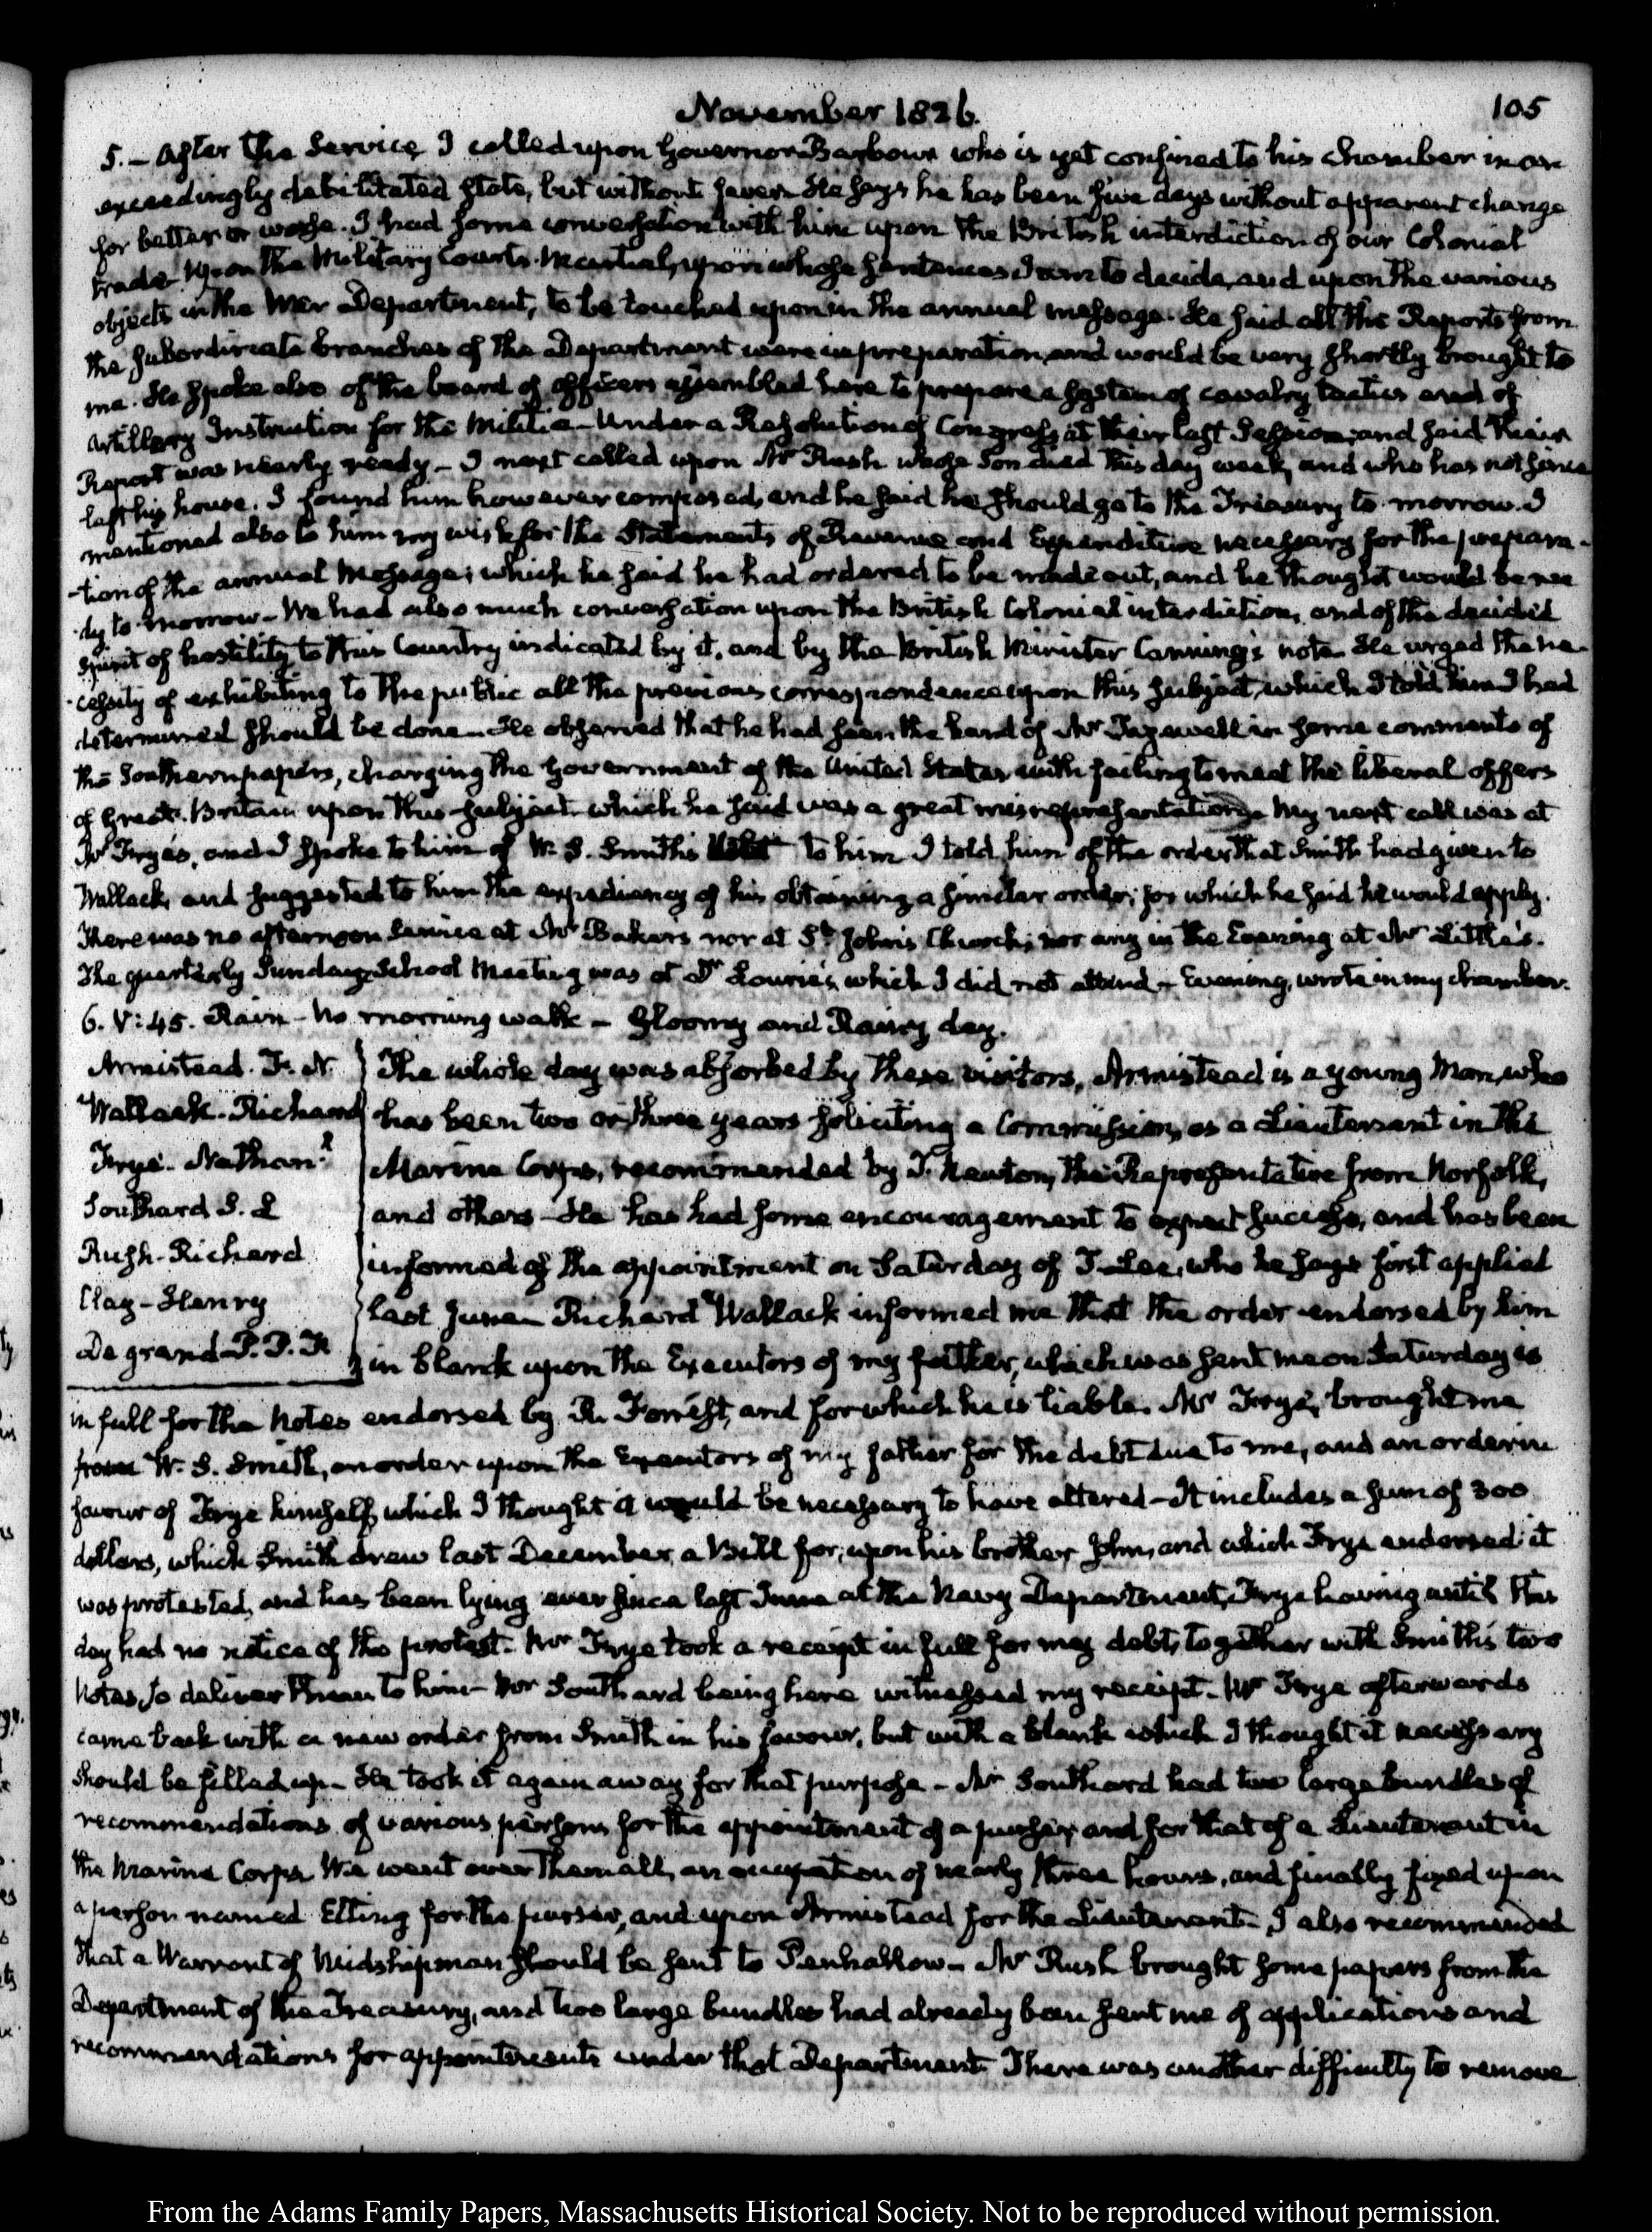 November 1826.
105
5. – After the Service I called upon Governor Barbour who is yet confined to his chamber in an
exceedingly debilitated state, but without fever. He says he has been five days without apparent change
for better or worse. I had some conversation with him upon the British interdiction of our Colonial
trade. Upon the Military Courts-Martial, upon whose sentences I am to decide, and upon the various
objects in the War Department, to be touched upon in the annual message. He said all the Reports from
the subordinate branches of the Department were in preparation and would be very shortly brought to
me. He spoke also of the board of officers assembled here to prepare a system of cavalry tactics and of
Artillery Instruction for the Militia – Under a Resolution of Congress at their last Session, and said their
Report was nearly ready – I next called upon Mr Rush whose Son died this day week, and who has not since
left his house. I found him however composed, and he said he should go to the Treasury to-morrow. I
mentioned also to him my wish for the Statements of Revenue and Expenditure necessary for the prepara-
-tion of the annual Message; which he said he had ordered to be made out, and he thought would be rea
-dy to-morrow – We had also much conversation upon the British Colonial interdiction, and of the decided
spirit of hostility to this Country indicated by it, and by the British Minister Canning's note. He urged the ne-
-cessity of exhibiting to the public all the previous correspondence upon this subject, which I told him I had
determined should be done – He observed that he had seen the hand of Mr Tazewell in some comments of
the Southern papers, charging the Government of the United States with failing to meet the liberal offers
of Great-Britain upon this subject which he said was a great misrepresentation – My next call was at
Mr Frye's, and I spoke to him of W. S. Smith's to him I told him of the order that Smith had given to
Wallack, and suggested to him the expediency of his obtaining a similar order; for which he said he would apply.
There was no afternoon Service at Mr Baker's nor at St. John's Church; nor any in the Evening at Mr Little's.
The quarterly Sunday School Meeting was at Dr Laurie's, which I did not attend – Evening, wrote in my chamber.
6. V:45. Rain – No morning walk – Gloomy and Rainy day.
Armistead. F. N.
Wallack. Richard
Frye. Nathanl.
Southard S. L
Rush. Richard
Clay – Henry
Degrand. P. P. F.
The whole day was absorbed by these visitors, Armistead is a young Man, who
has been two or three years soliciting a Commission, as a Lieutenant in the
Marine Corps, recommended by T. Newton, the Representative from Norfolk,
and others – He has had some encouragement to expect success, and has been
informed of the appointment on Saturday of J. Lee, who he says first applied
last June – Richard Wallack informed me that the order endorsed by him
in blank upon the Executors of my father, which was sent me on Saturday is
in full for the Notes endorsed by R. Forrest, and for which he is liable. Mr Frye, brought me
from W. S. Smith, an order upon the Executors of my father for the debt due to me, and an order in
favour of Frye himself, which I thought it would be necessary to have altered – It includes a sum of 300
dollars, which Smith drew last December, a Bill for, upon his brother John, and which Frye endorsed. it
was protested, and has been lying ever since last June at the Navy Department, Frye having until this
day had no notice of the protest. Mr Frye took a receipt in full for my debt, together with Smith's two
Notes, to deliver them to him – Mr Southard being here witnessed my receipt. Mr Frye afterwards
came back with a new order from Smith in his favour, but with a blank which I thought it necessary
should be filled up – He took it again away for that purpose – Mr Southard had two large bundles of
recommendations of various persons for the appointment of a purser, and for that of a Lieutenant in
the Marine Corps. We went over them all, an occupation of nearly three hours, and finally fixed upon
a person named Etting for the purser, and upon Armistead for the Lieutenant. I also recommended
that a Warrant of Midshipman should be sent to Penhallow – Mr Rush brought some papers from the
Department of the Treasury, and two large bundles had already been sent me of applications and
recommendations for appointments under that Department. There was another difficulty to remove
From the Adams Family Papers, Massachusetts Historical Society. Not to be reproduced without permission.